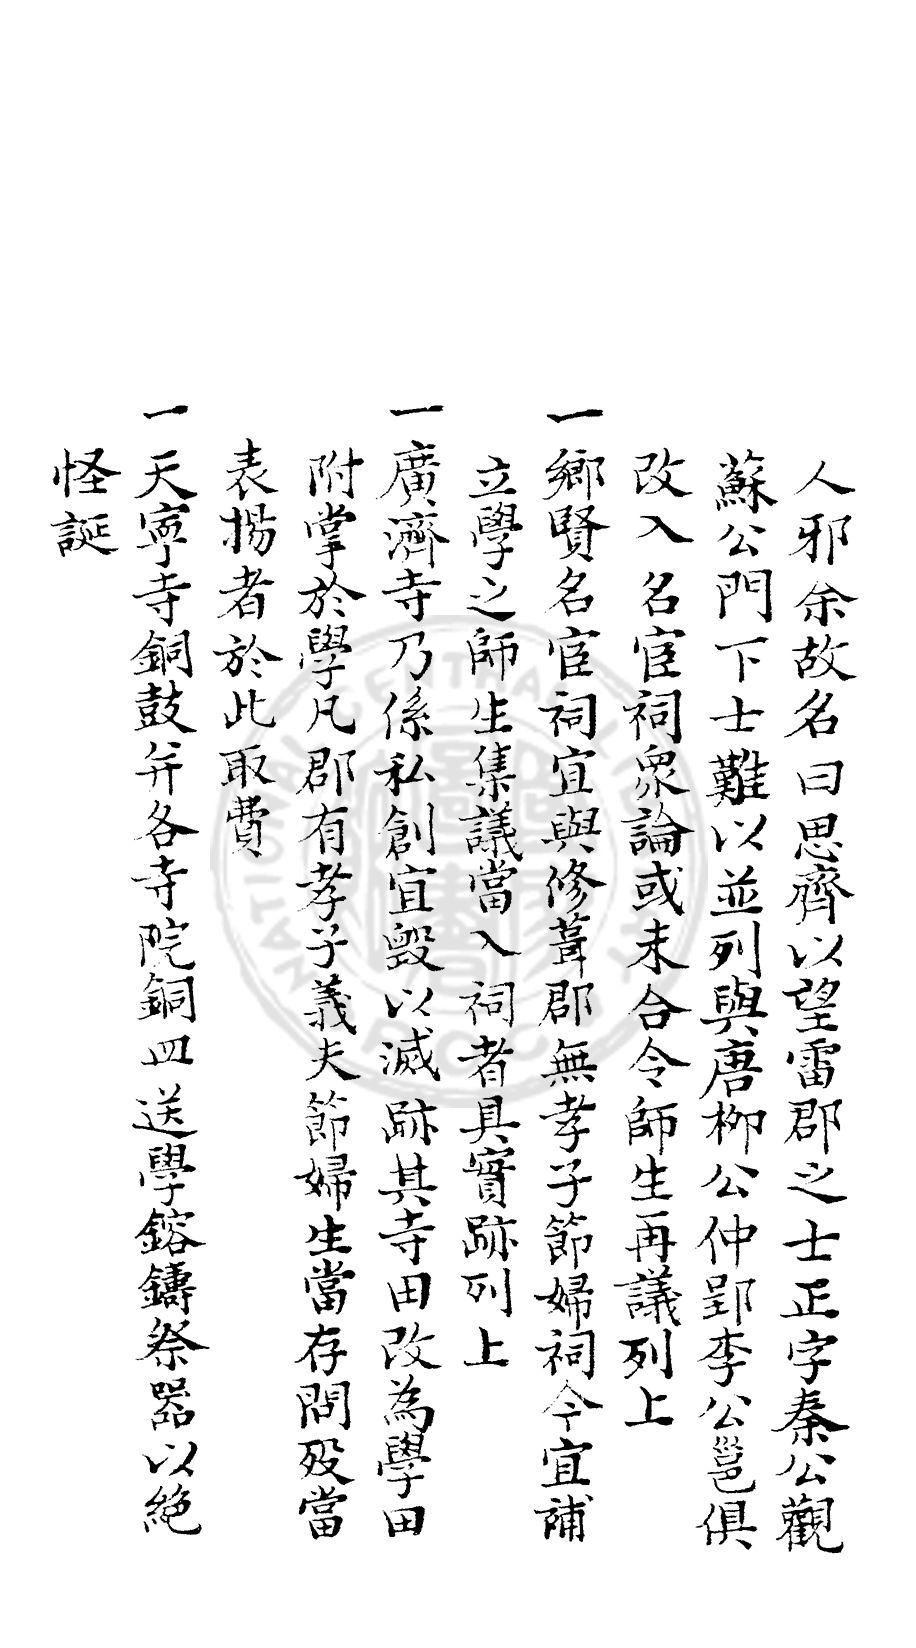 人邪余故名曰思齊以望雷郡之士正字秦公觀
蘇公門下士難以並列與唐柳公仲郢李公邕俱
改入名宦祠衆論或未合令師生再議列上
一鄉賢名宦祠宜與修葺郡無孝子節婦祠今宜補
立學之師生集議當入祠者具實跡列上
一廣濟寺乃係私創宜毀以滅跡其寺田改為學田
附掌於學凡郡有孝子義夫節婦生當存問歿當
表揚者於此取費
一天寧寺銅鼓并各寺院銅皿送學鎔鑄祭器以絕
怪誕
NATIONAL CENTRAL LIBRARY